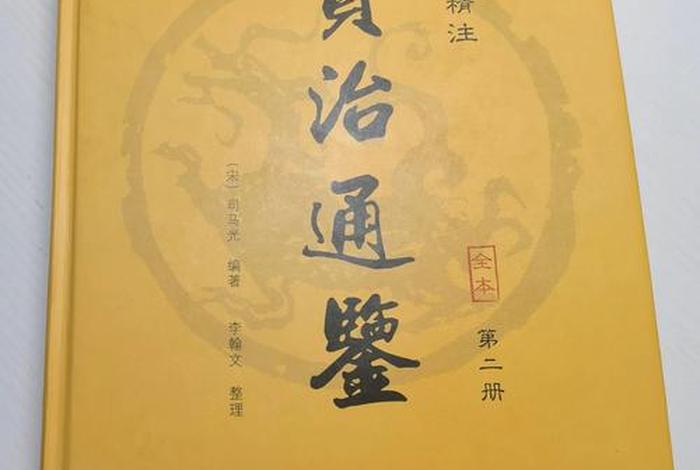 精注
資治通鑒
全本
第二册
〔宋〕司马光 编著
李翰文 整理